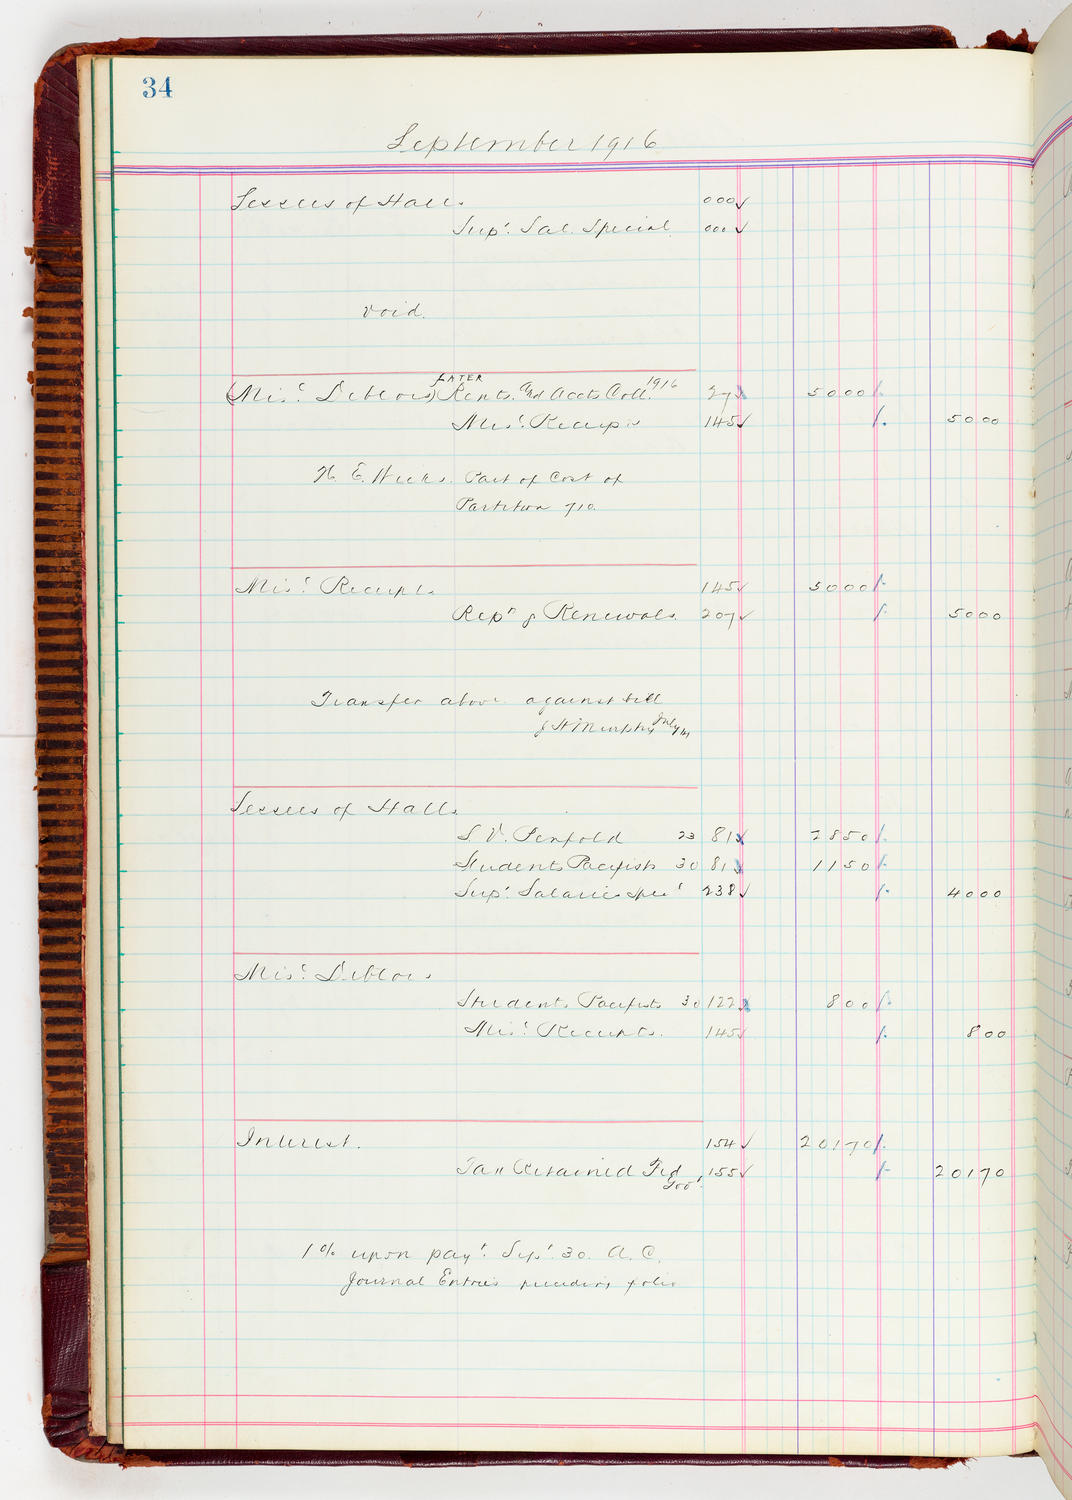 34
September 1916
Lessees of Halls. 000 ✓
Supt. Sal. Special 000 ✓
void.
LATER
(Misc. Debtors) Rents. and Accts Coll. 1916 27 5000 /.
Misc. Receipts 145 ✓ /. 5000
H. E. Weeks. Part of Cost of
Partition 710.
Misc. Receipts 145 ✓ 5000 /.
Reprs & Renewals. 207 ✓ /. 5000
Transfer above against bill
J H Murphy July
Lessees of Halls.
S. V. Penfold 23 81 ✓ 2850 /.
Students Pacifists 30 81 1150 /.
Supt. Salaries Specl 238 ✓ /. 4000
Misc. Debtors
Students Pacifists 30 122 800 /.
Misc. Receipts. 145 ✓ /. 800
Interest. 154 ✓ 20170 /.
Tax Retained Fed 155 ✓ /. 20170
Gov't.
1% upon payt. Sept. 30. A. C.
Journal Entries preceding folio